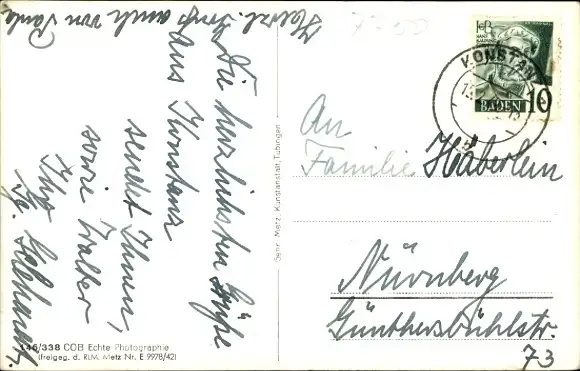 Herzl. Grüße auch von Paula
Die herzlichsten Grüße
aus Konstanz
sendet Ihnen,
sowie Walter
Ihre
145/338 COB Echte Photographie
(freigeg. d. RLM. Metz Nr. E 9978/42)
Gebr. Metz, Kunstanstalt, Tübingen
HANS
BALDUNG
BADEN
10
KONSTANZ
An
Familie Häberlein
Nürnberg
Günthersbühlstr.
73